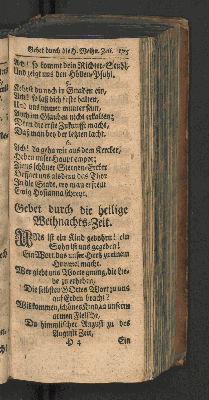 Gebet durch die H. Weihn. Zeit. 175
Ach! so kommt dein Richter-Stuhl,
Und zeigt uns den Höllen-Pfuhl.
5.
Kehrst du noch in Gnaden ein,
Ach! so laß dich feste halten,
Und uns immer munter seyn,
Auch im Glauben nicht erkalten;
Denn der erste Zukunfft macht,
Daß man bey der letzten lacht.
6.
Ach! da gehn wir aus dem Kercker,
Heben unser Haupt empor;
Deines schöner Sternen-Ercker
Oeffnet uns alsdenn das Thor
In die Stadt, wo man erfreut
Ewig Hosianna schreyt.
Gebet durch die heilige
Weihnachts-Zeit.
UNs ist ein Kind gebohrn! ein
Sohn ist uns gegeben!
Ein Wort, das unser Hertz zu einem
Himmel macht.
Wer giebt uns Worte gnung, die Lie-
be zu erheben,
Die selbsten GOttes Wort zu uns
auf Erden bracht?
Willkommen, schönes Kind, aus unserm
armen Fleische,
Du himmlischer August zu des
Augusti Zeit,
H 4 Ein